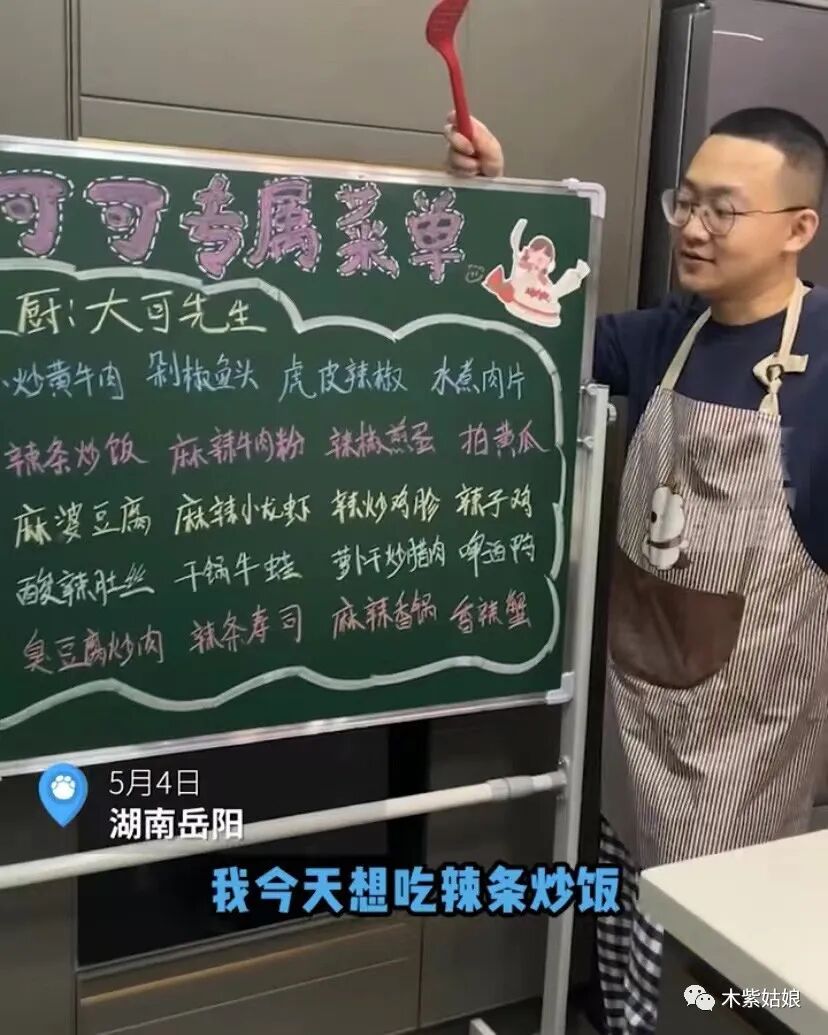 可可专属菜单
厨:大可先生
小炒黄牛肉 剁椒鱼头 虎皮辣椒 水煮肉片
辣条炒饭 麻辣牛肉粉 辣椒煎蛋 拍黄瓜
麻婆豆腐 麻辣小龙虾 辣炒鸡胗 辣子鸡
酸辣肚丝 干锅牛蛙 萝卜干炒腊肉 啤酒鸭
臭豆腐炒肉 辣条寿司 麻辣香锅 香辣蟹
5月4日
湖南岳阳
我今天想吃辣条炒饭
木紫姑娘